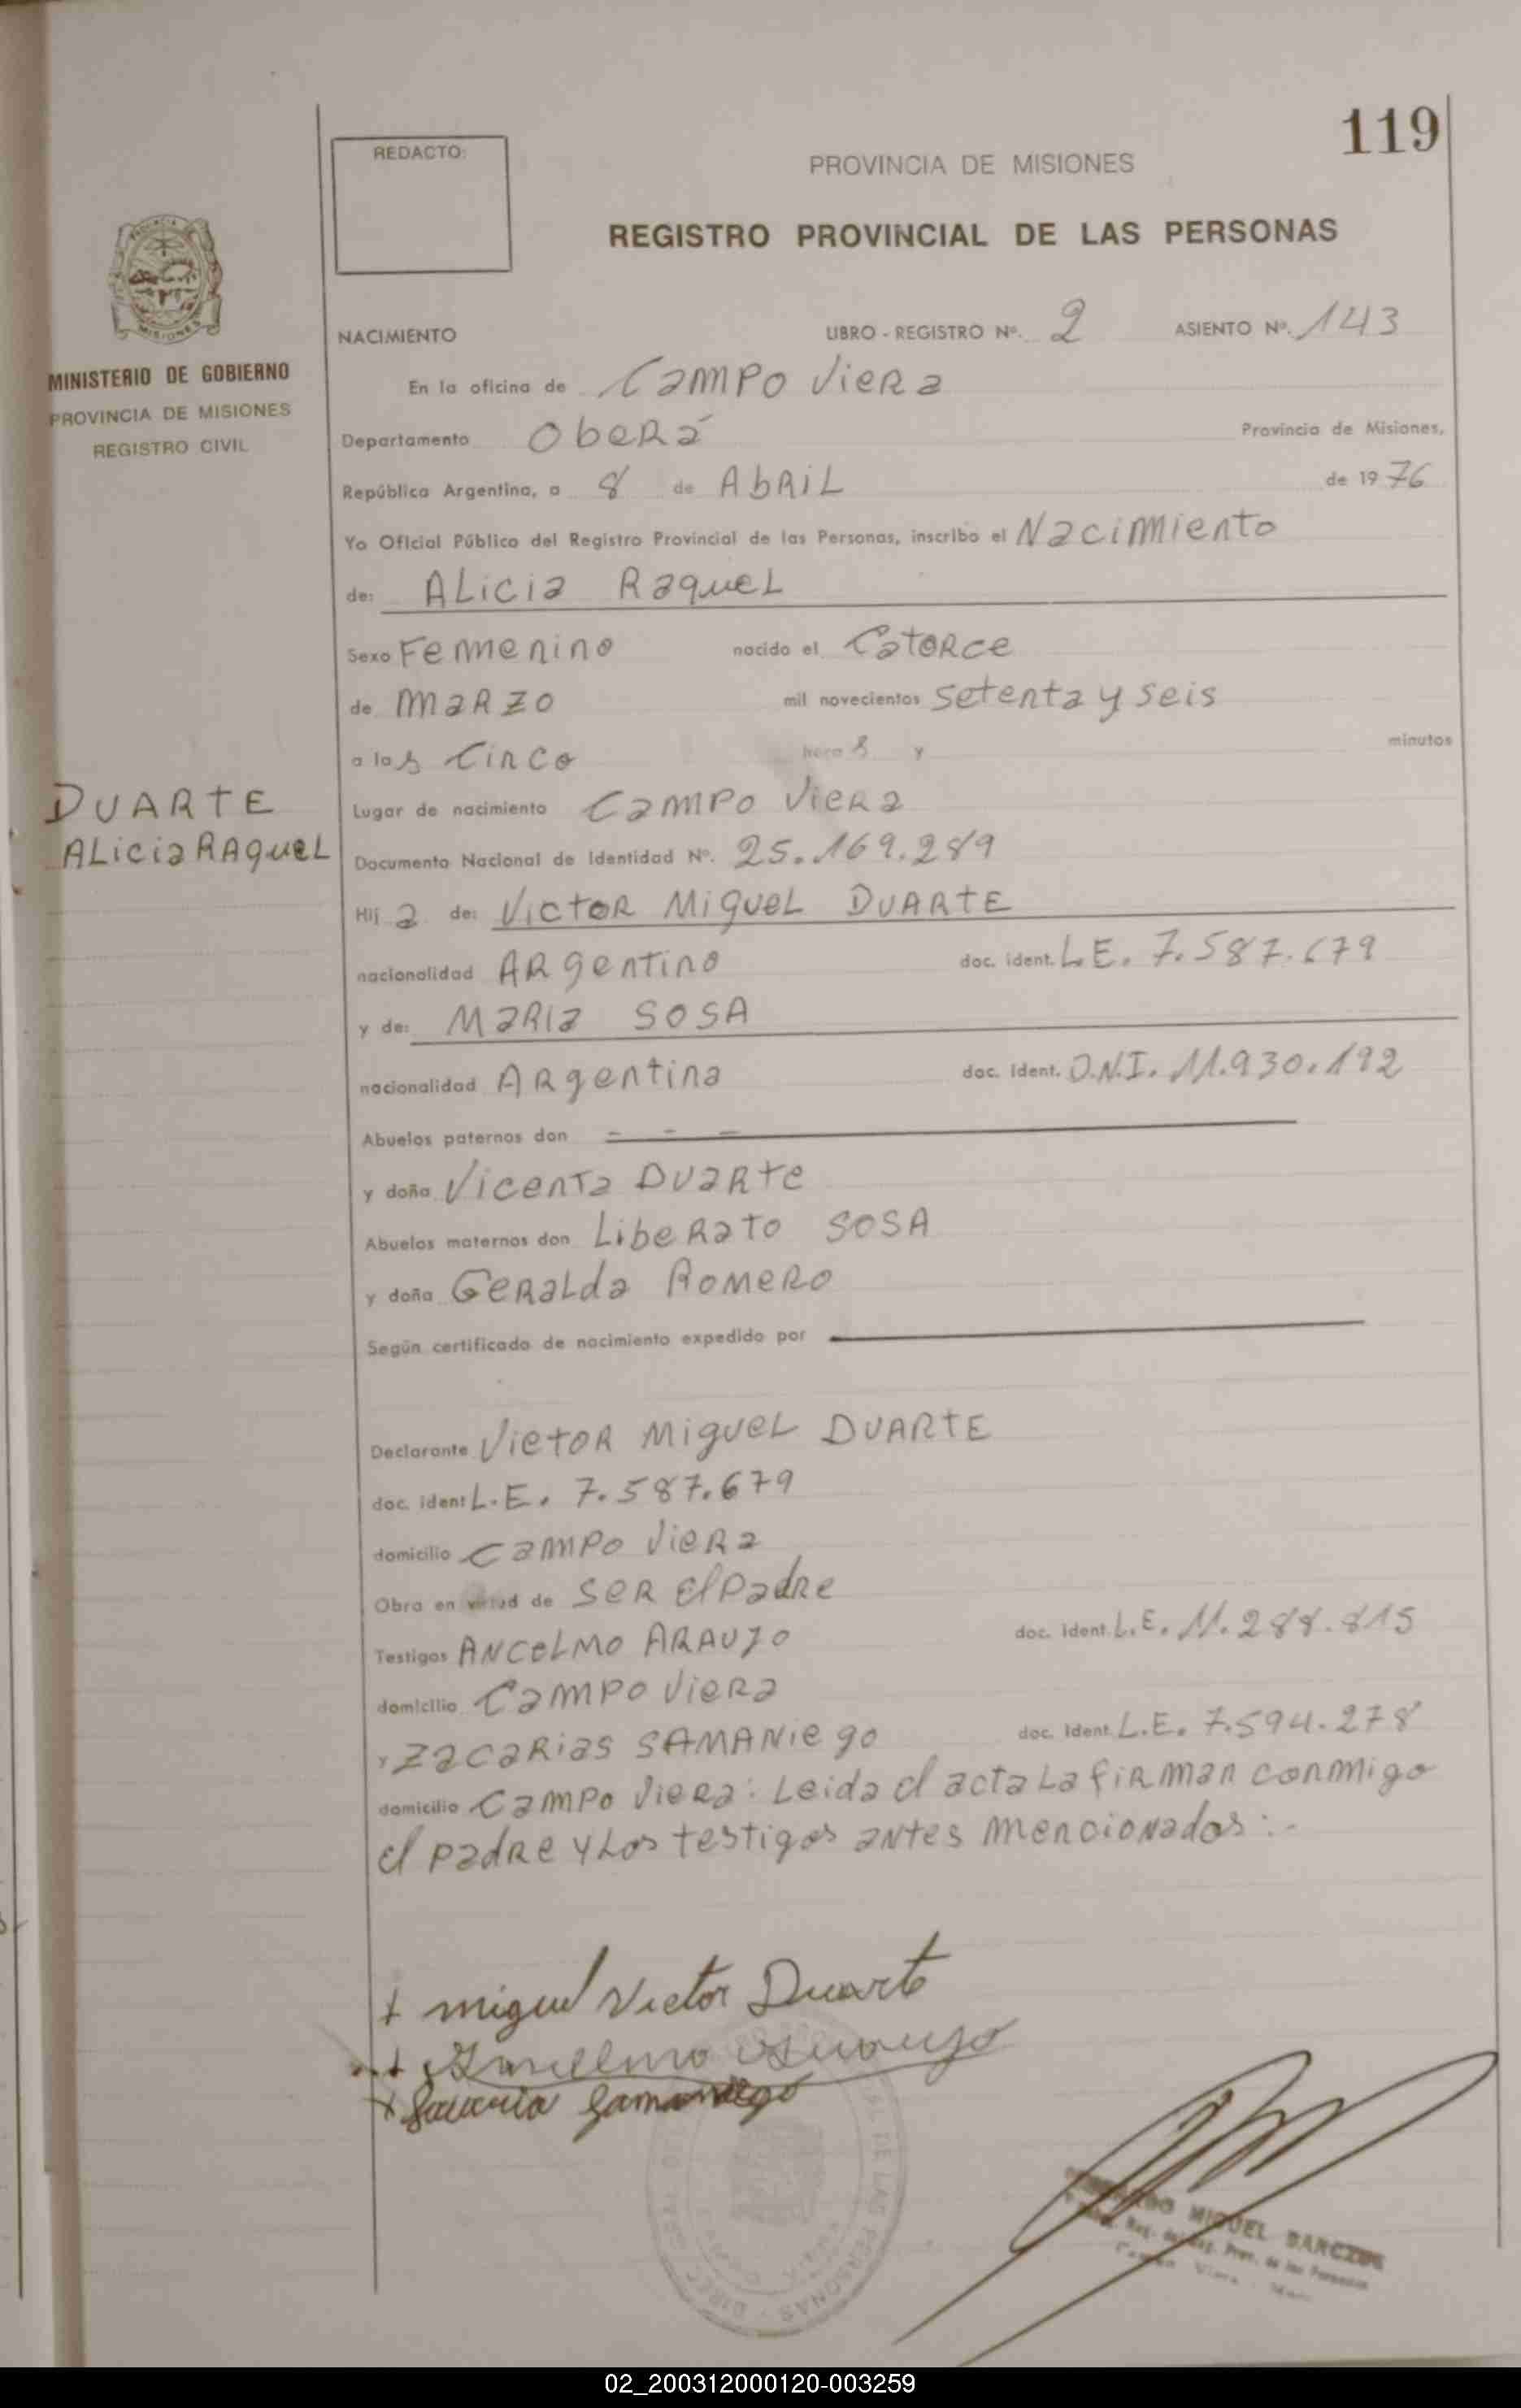 119
REDACTO:
PROVINCIA DE MISIONES
REGISTRO PROVINCIAL DE LAS PERSONAS
MINISTERIO DE GOBIERNO
PROVINCIA DE MISIONES
REGISTRO CIVIL
NACIMIENTO LIBRO - REGISTRO Nº. 2 ASIENTO Nº. 143
En la oficina de Campo Viera
Departamento Oberá Provincia de Misiones,
República Argentina, a 8 de Abril de 1976
Yo Oficial Público del Registro Provincial de las Personas, inscribo el Nacimiento
de: Alicia Raquel
Sexo Femenino nacido el Catorce
de Marzo mil novecientos setenta y seis
a las Cinco hora s y minutos
DUARTE
Alicia Raquel
Lugar de nacimiento Campo Viera
Documento Nacional de Identidad Nº. 25.169.289
Hij a de: Victor Miguel DUARTE
nacionalidad Argentino doc. ident. L.E. 7.587.679
y de: Maria SOSA
nacionalidad Argentina doc. ident. D.N.I. 11.930.192
Abuelos paternos don - - -
y doña Vicenta Duarte
Abuelos maternos don Liberato SOSA
y doña Geralda Romero
Según certificado de nacimiento expedido por
Declarante Victor Miguel DUARTE
doc. ident L.E. 7.587.679
domicilio Campo Viera
Obra en virtud de Ser El Padre
Testigos ANCELMO ARAUJO doc. ident. L.E. 11.288.815
domicilio Campo Viera
y Zacarias SAMANIEGO doc. ident. L.E. 7.594.278
domicilio Campo Viera: Leida el acta La firman conmigo
el padre y Los testigos antes mencionados:.-
+ Miguel Victor Duarte
MIGUEL
02_200312000120-003259